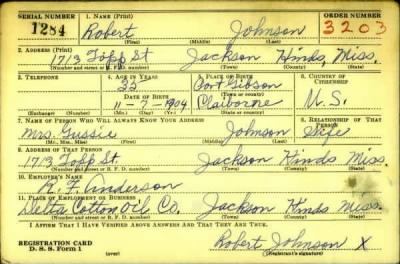 SERIAL NUMBER 1. NAME (Print) ORDER NUMBER
1284 Robert Johnson 3203
(First) (Middle) (Last)
2. ADDRESS (Print)
1713 Topp St Jackson Hinds, Miss.
(Number and street or R. F. D. number) (Town) (County) (State)
3. TELEPHONE 4. AGE IN YEARS 5. PLACE OF BIRTH 6. COUNTRY OF CITIZENSHIP
35 Port Gibson
DATE OF BIRTH (Town or county)
11-7-1904 Claiborne U.S.
(Exchange) (Number) (Mo.) (Day) (Yr.) (State or country)
7. NAME OF PERSON WHO WILL ALWAYS KNOW YOUR ADDRESS 8. RELATIONSHIP OF THAT PERSON
Mrs. Gussie Johnson Wife
(Mr., Mrs., Miss) (First) (Middle) (Last)
9. ADDRESS OF THAT PERSON
1713 Topp St. Jackson Hinds Miss.
(Number and street or R. F. D. number) (Town) (County) (State)
10. EMPLOYER'S NAME
R. F. Anderson
11. PLACE OF EMPLOYMENT OR BUSINESS
Delta Cotton Oil Co. Jackson Hinds Miss.
(Number and street or R. F. D. number) (Town) (County) (State)
I AFFIRM THAT I HAVE VERIFIED ABOVE ANSWERS AND THAT THEY ARE TRUE.
Robert Johnson X
REGISTRATION CARD
D. S. S. Form 1 (over) (Registrant's signature)